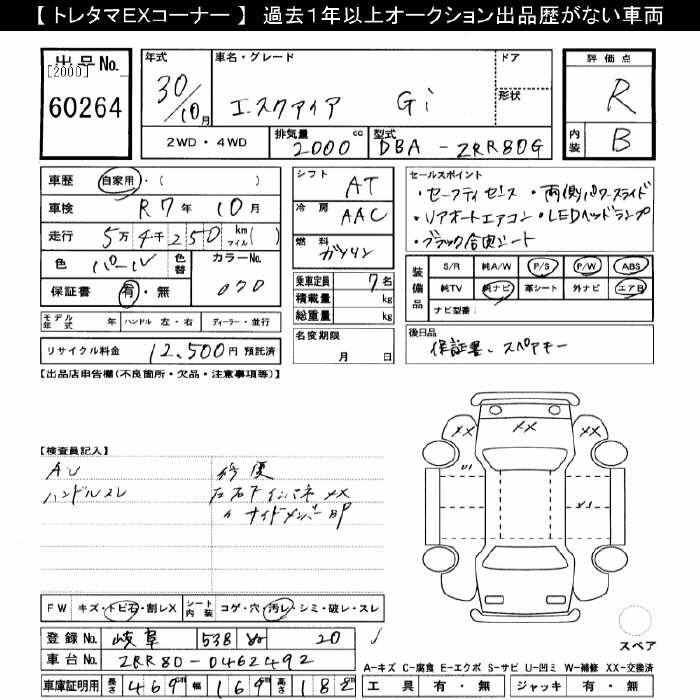 【 トレタマEXコーナー 】 過去１年以上オークション出品歴がない車両
出品No.
[2000]
60264
年式
30/10月
車名・グレード
エスクァイア Gi
ドア
形状
2WD・4WD
排気量
2000 cc
型式
DBA - ZRR80G
評価点
R
内装
B
車歴
自家用・( )
車検
R7年 10月
走行
5万4千250 km マイル( )
色
パール
色替
カラーNo.
070
保証書
有・無
シフト
AT
冷房
AAC
燃料
ガソリン
乗車定員
7名
積載量
kg
総重量
kg
名変期限
月 日
セールスポイント
・セーフティセンス ・両側パワースライド
・リアオートエアコン ・LEDヘッドランプ
・ブラック合皮シート
装備品
S/R 純A/W P/S P/W ABS
純TV 純ナビ 革シート 外ナビ エアB
ナビ型番:
モデル年式 年
ハンドル 左・右
ディーラー・並行
リサイクル料金
12,500円 預託済
後日品
保証書、スペアキー
【出品店申告欄(不良箇所・欠品・注意事項等)】
【検査員記入】
AU
ハンドルスレ
修復
左右下インパネXX
〃サイドメンバーBP
XX
XX
XX
U1
A1
FW
キズ・トビ石・割レX
シート内装
コゲ・穴・汚レ・シミ・破レ・スレ
登録No.
岐阜 538 ぬ 20
車台No.
ZRR80-0462492
車庫証明用
長さ
469cm
幅
169cm
高さ
182cm
スペア
A-キズ C-腐食 E-エクボ S-サビ U-凹ミ W-補修 XX-交換済
工具 有・無 ジャッキ 有・無